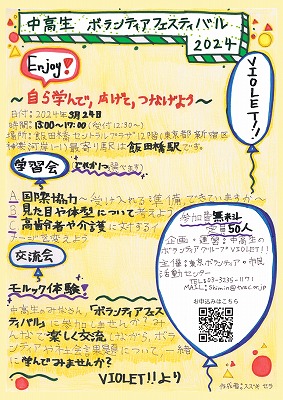 中高生 ボランティアフェスティバル
2024
Enjoy!
VIOLET!!
～自ら学んで、広げて、つなげよう～
日付：2024年3月24日
時間：13:00～17:00(受付12:30～)
場所：飯田橋セントラルプラザ12階(東京都新宿区
神楽河岸1-1)最寄り駅は飯田橋駅です。
学習会
A 国際協力～受け入れる準備、できていますか～
B 見た目や体型について考えよう
C 高齢者や介護に対するイ
メージを変えよう
交流会
モルック体験!
中高生のみなさん、「ボランティアフェス
ティバル」に参加しませんか?み
んなで楽しく交流しながら、ボラン
ティアや社会問題について、一緒
に学んでみませんか?
VIOLET!!より
参加費無料
定員50人
企画・運営：中高生の
ボランティアグループVIOLET!!
主催：東京ボランティア・市民
活動センター
TEL:03-3235-1171
お申込みはこちら